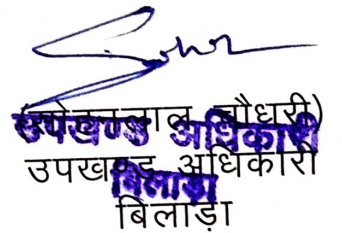 चौधरी)
उपखण्ड अधिकारी
उपखण्ड अधिकारी
बिलाड़ा
बिलाड़ा